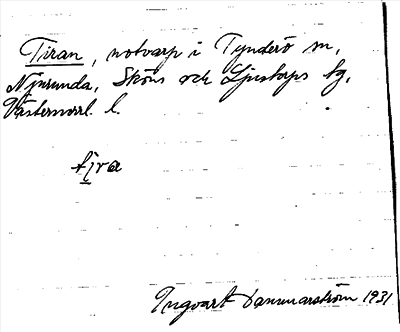 Tiran, notvarp i Tynderö sn,
Njurunda, Sköns och Ljustorps tg,
Västernorrl. l.
tira
Ingvart Hammarström 1931